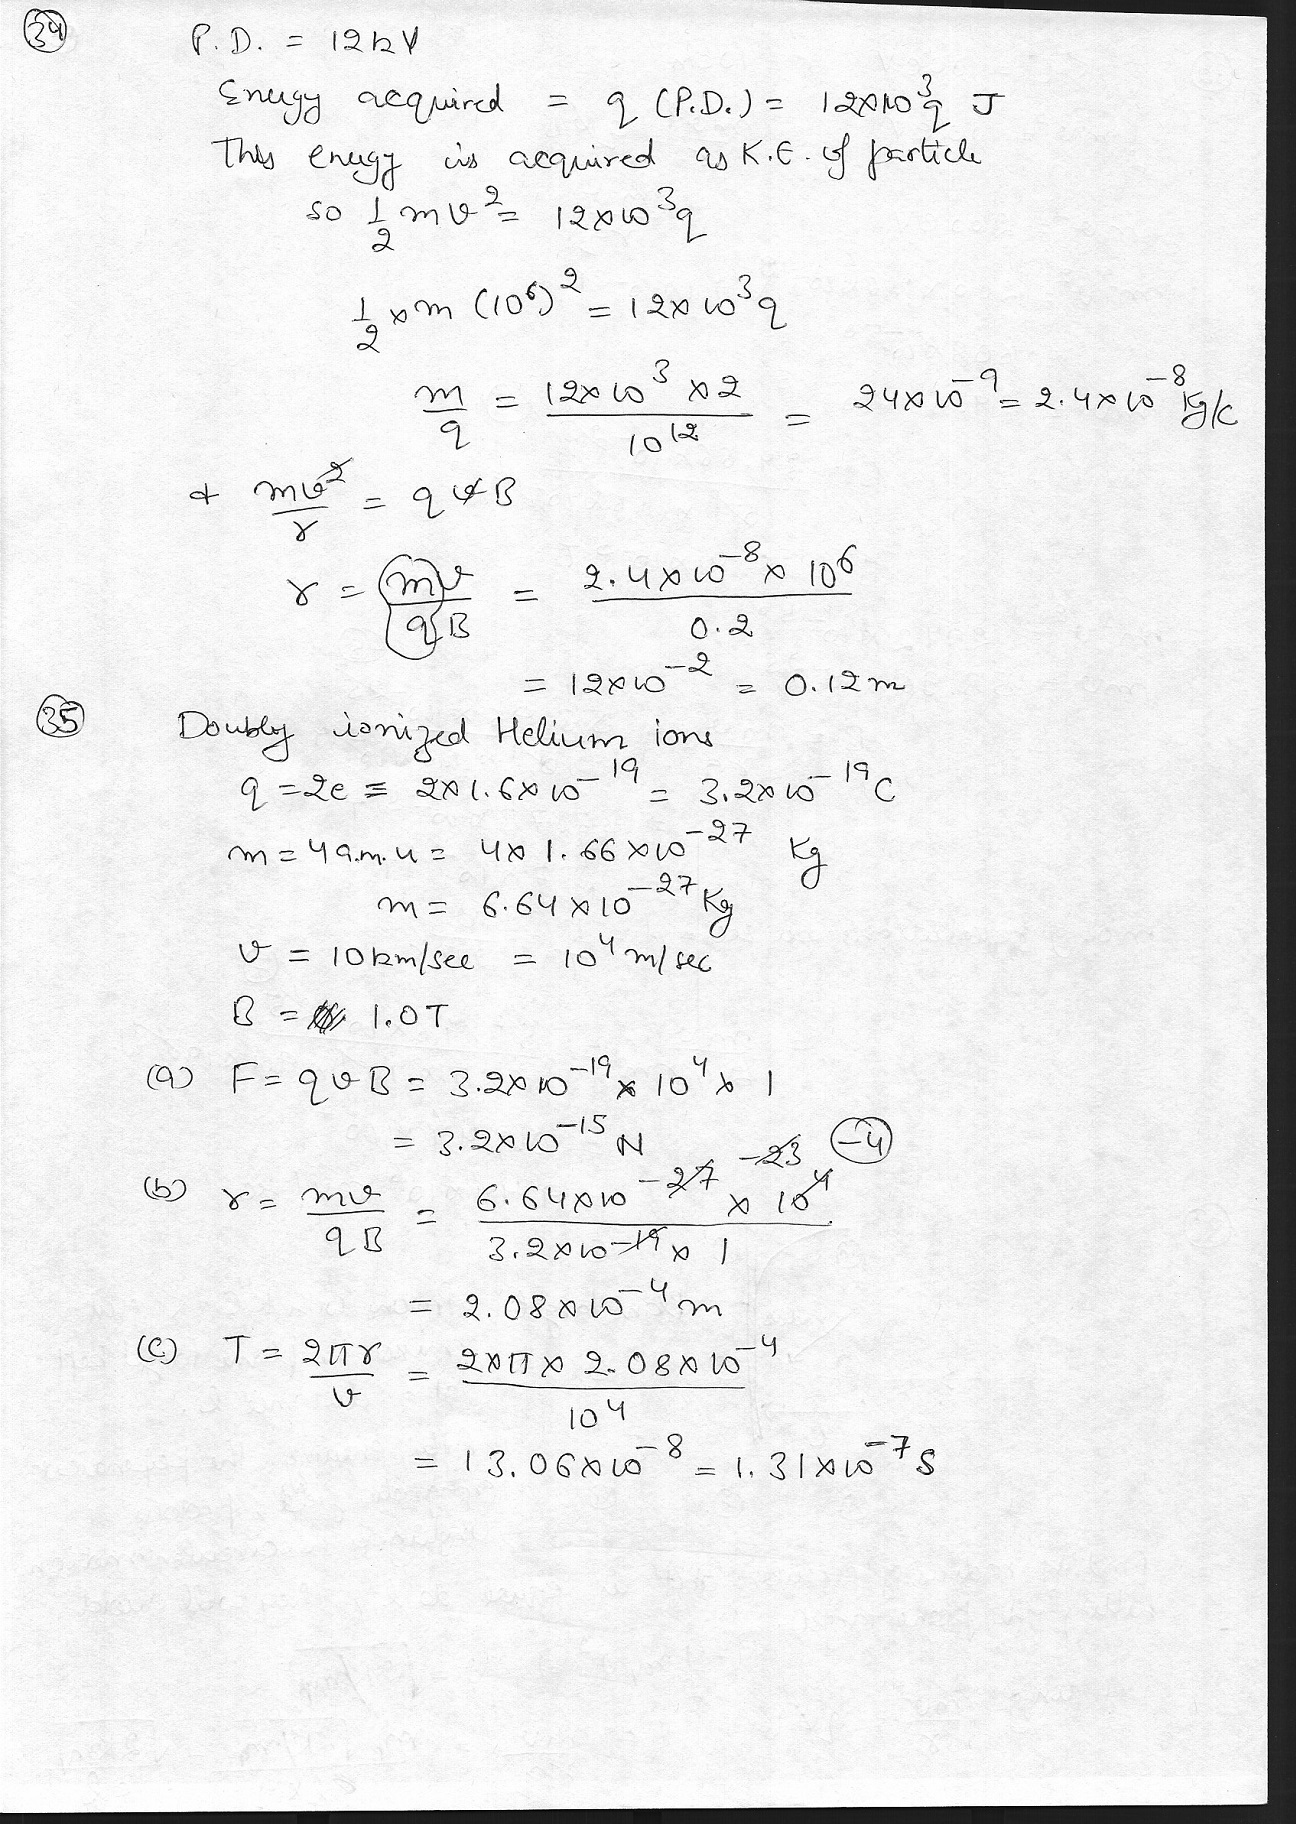 (34) P.D. = 12kV
Energy acquired = q (P.D.) = 12×10³q J
This energy is acquired as K.E. of particle
so 1/2 mv² = 12×10³q
1/2 × m (10⁶)² = 12×10³q
m/q = (12×10³ ×2)/10¹² = 24×10⁻⁹ = 2.4×10⁻⁸ Kg/C
& mv²/r = qvB
r = mv/qB = (2.4×10⁻⁸ × 10⁶)/0.2
= 12×10⁻² = 0.12m
(35) Doubly ionized Helium ions
q = 2e = 2×1.6×10⁻¹⁹ = 3.2×10⁻¹⁹C
m = 4a.m.u = 4× 1.66×10⁻²⁷ Kg
m = 6.64×10⁻²⁷ Kg
v = 10km/sec = 10⁴m/sec
B = 1.0T
(a) F = qvB = 3.2×10⁻¹⁹ × 10⁴ × 1
= 3.2×10⁻¹⁵ N
(b) r = mv/qB = (6.64×10⁻²⁷ × 10⁴)/(3.2×10⁻¹⁹ × 1) -23 (-4)
= 2.08×10⁻⁴ m
(c) T = 2πr/v = (2×π× 2.08×10⁻⁴)/10⁴
= 13.06×10⁻⁸ = 1.31×10⁻⁷ S